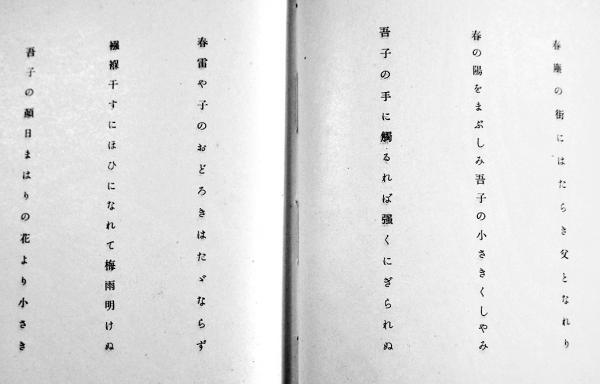 春塵の街にはたらき父となれり
春の陽をまぶしみ吾子の小さきくしやみ
吾子の手に觸るれば强くにぎられぬ
春雷や子のおどろきはたゞならず
襁褓干すにほひになれて梅雨明けぬ
吾子の顏日まはりの花より小さき